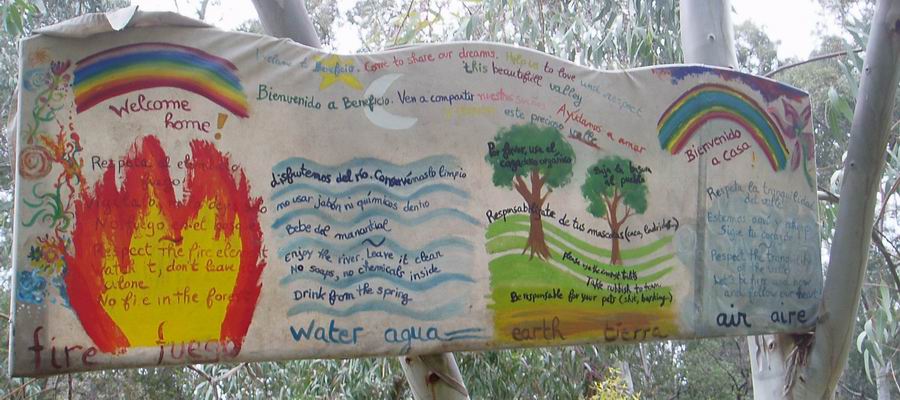 Welcome to Beneficio. Come to share our dreams. Help us to love and respect
this beautifull valley
Bienvenido a Beneficio. Ven a compartir nuestros sueños Ayúdanos a amar
este precioso valle
Welcome
home!
Respeta el elemento
fuego
No fuego en el bosque
Respect the fire element
Watch it, don't leave it
alone
No fire in the forest
fire fuego
disfrutemos del río. Conservémoslo limpio
no usar jabón ni químicos dentro
Bebe del manantial
~
Enjoy the river. Leave it clean
No soaps, no chemicals inside
Drink from the spring
Water agua
Por favor, use el
cagadero orgánico
Baja tu basura
al pueblo
Responsabilízate de tus mascotas (caca, ladridos..)
Please use the compost toilets
Take rubbish to town
Be responsable for your pets (shit, barking..)
earth tierra
Bienvenido
a casa!
Respeta la tranquilidad
del valle
Estamos aquí y ahora
Sigue tu corazón
~
Respect the tranquility
of the valley
and follow our heart
air aire